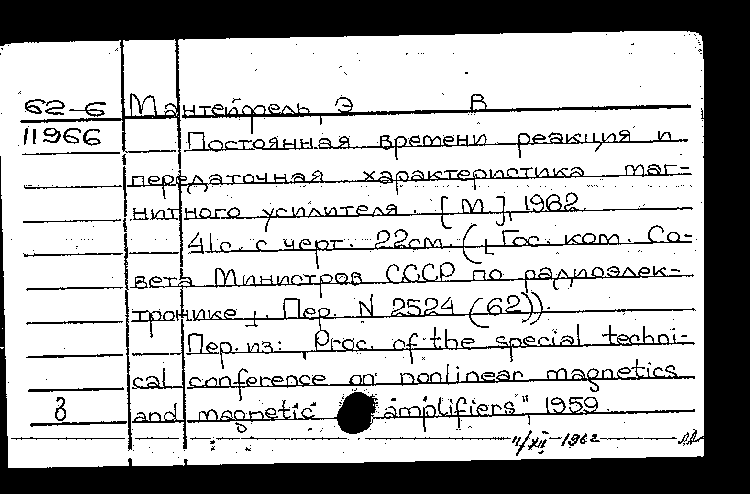 62-6 Мантейфель, Э В
11966 Постоянная времени реакция и
передаточная характеристика маг-
нитного усилителя. [М.], 1962
41с. с черт. 22см. ([Гос. ком. Со-
вета Министров СССР по радиоэлек-
тронике]. Пер. N 2524 (62)).
Пер. из: „Proc. of the special techni-
cal conference on nonlinear magnetics
3 and magnetic amplifiers", 1959
11/XII 1962